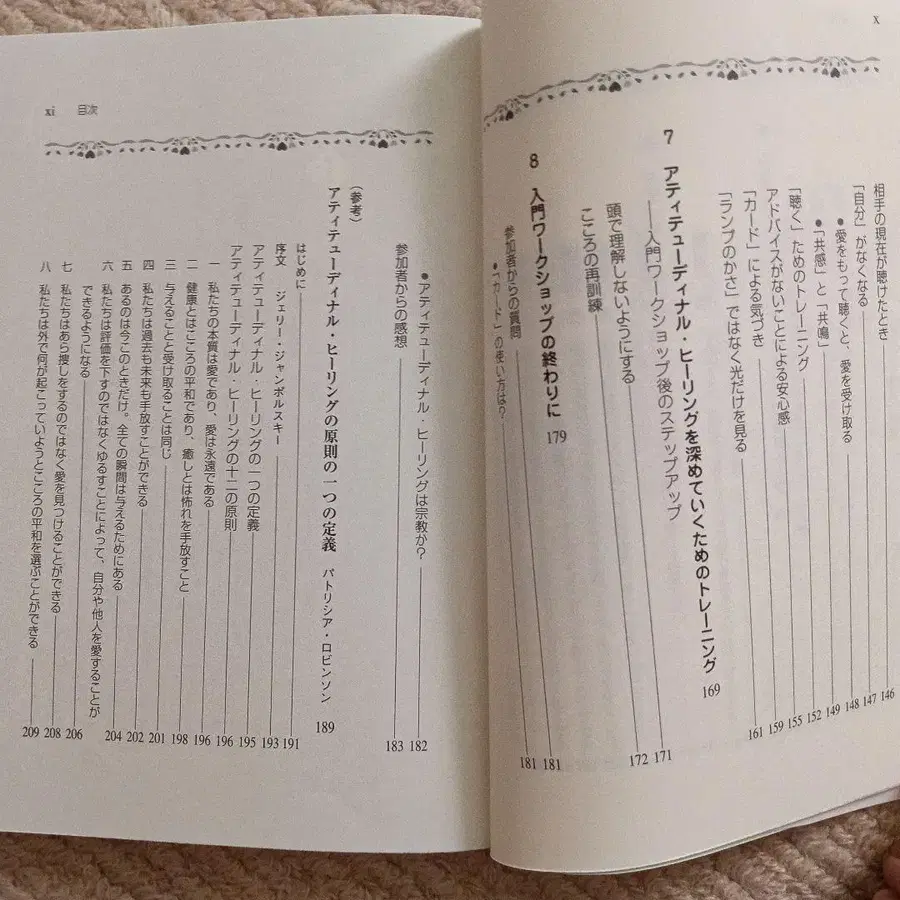 x
相手の現在が聴けたとき 146
「自分」がなくなる 147
●愛をもって聴くと、愛を受け取る 148
●「共感」と「共鳴」 149
「聴く」ためのトレーニング 152
アドバイスがないことによる安心感 155
「カード」による気づき 159
「ランプのかさ」ではなく光だけを見る 161
7 アティテューディナル・ヒーリングを深めていくためのトレーニング 169
――入門ワークショップ後のステップアップ
頭で理解しないようにする 171
こころの再訓練 172
8 入門ワークショップの終わりに 179
参加者からの質問 181
●「カード」の使い方は? 181
xi 目次
●アティテューディナル・ヒーリングは宗教か? 182
参加者からの感想 183
(参考)
アティテューディナル・ヒーリングの原則の一つの定義 パトリシア・ロビンソン 189
はじめに 191
序文 ジェリー・ジャンポルスキー 193
アティテューディナル・ヒーリングの一つの定義 195
アティテューディナル・ヒーリングの十二の原則 196
一 私たちの本質は愛であり、愛は永遠である 196
二 健康とはこころの平和であり、癒しとは怖れを手放すこと 198
三 与えることと受け取ることは同じ 201
四 私たちは過去も未来も手放すことができる 202
五 あるのは今このときだけ。全ての瞬間は与えるためにある 204
六 私たちは評価を下すのではなくゆるすことによって、自分や他人を愛することが
できるようになる 206
七 私たちはあら捜しをするのではなく愛を見つけることができる 208
八 私たちは外で何が起こっていようとこころの平和を選ぶことができる 209